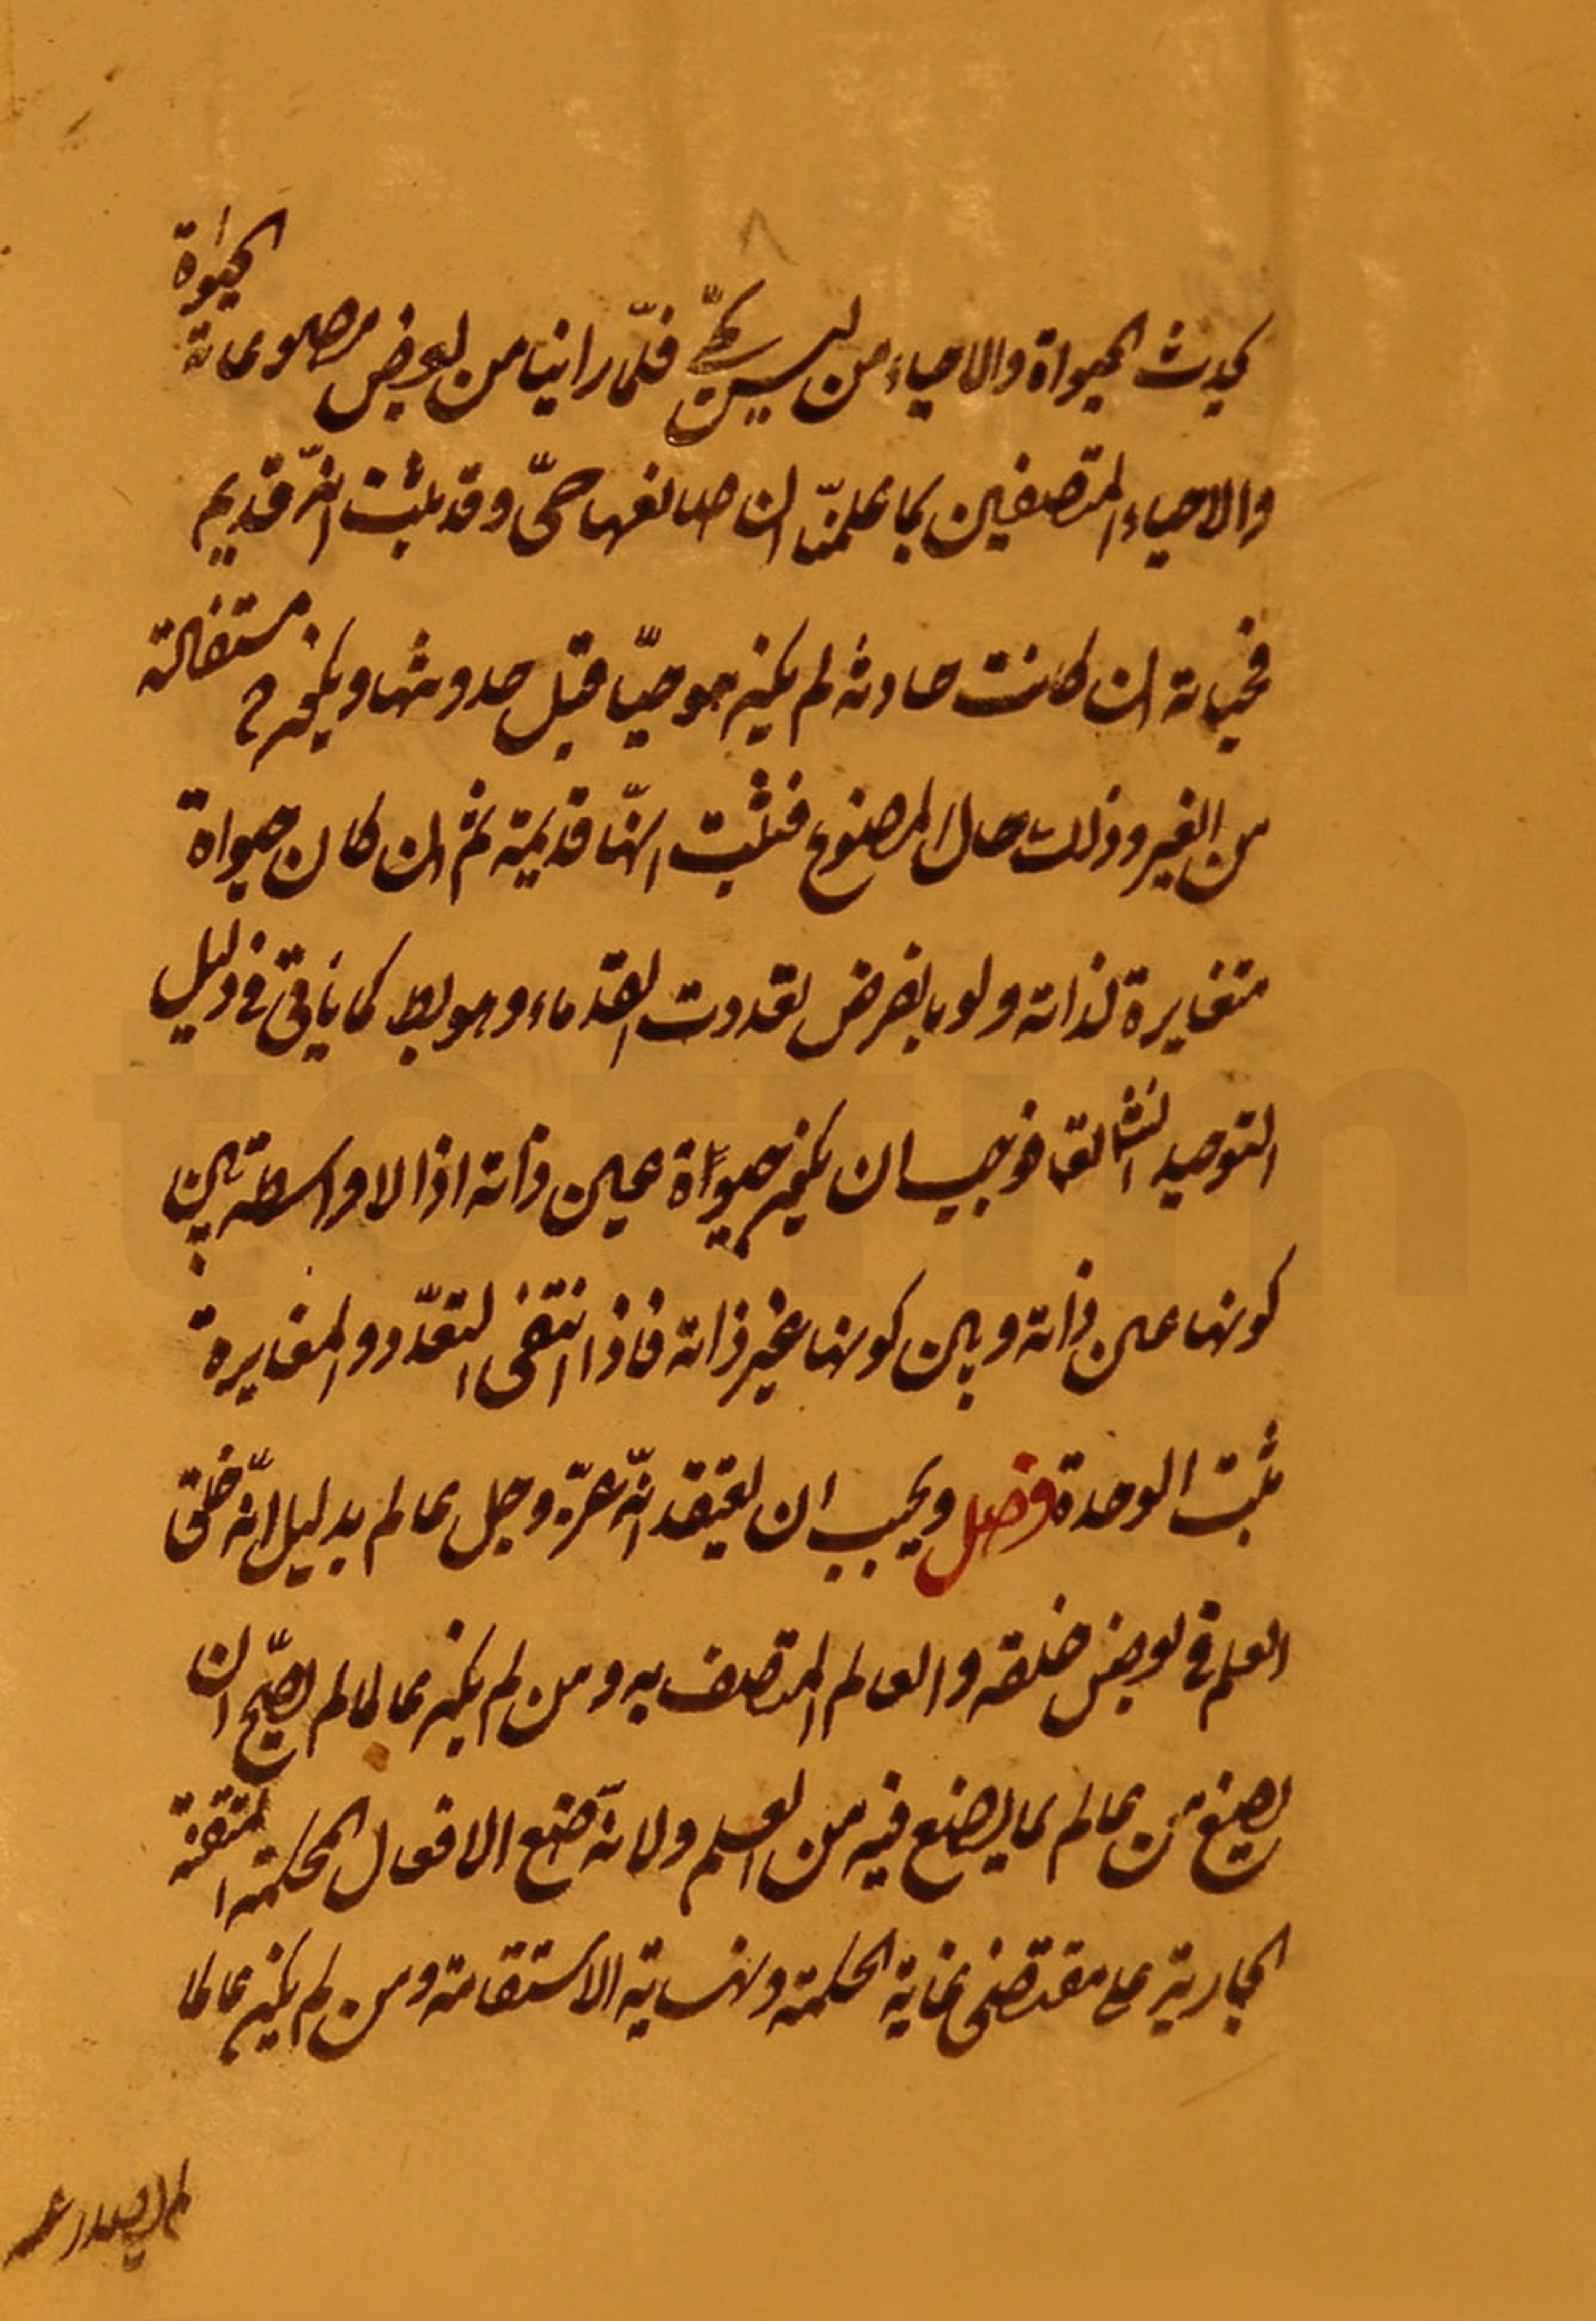 يحدث الحيواة والاحياء من ليس بحيّ فلمّا راينا من بعض مصنوعاته الحيواة
والاحياء المتصفين بها علمنّا ان صانعها حيّ وقد ثبت انّه قديم
فحياته ان كانت حادثه لم يكن هو حيّا قبل حدوثها ويكون ح مستفادة
من الغير وذلك حال المصنوع فثبت انّها قديمة ثم ان كان حيواة
متغايرة لذاته ولو بالفرض تعددت القدماء وهو بط كما ياتى فى دليل
التوحيد انشا الله تعا فوجب ان يكون حيواة عين ذاته اذ لا واسطة بين
كونها عين ذاته وبين كونها غير ذاته فاذا انتفى التعدّد والمغايرة
ثبت الوحدة فصل ويجب ان يعتقد انّه عزّ وجل عالم بدليل انّه خلق
العلم فى بعض خلقه والعالم المتصف به ومن لم يكن عالما لم يصحّ ان
يصنع من عالم بما يصنع فيه من العلم ولانّه صنع الافعال المحكمة المتقنة
الجارية على مقتضى غاية الحكمة ونهاية الاستقامة ومن لم يكن عالما
لم يصدر عنه